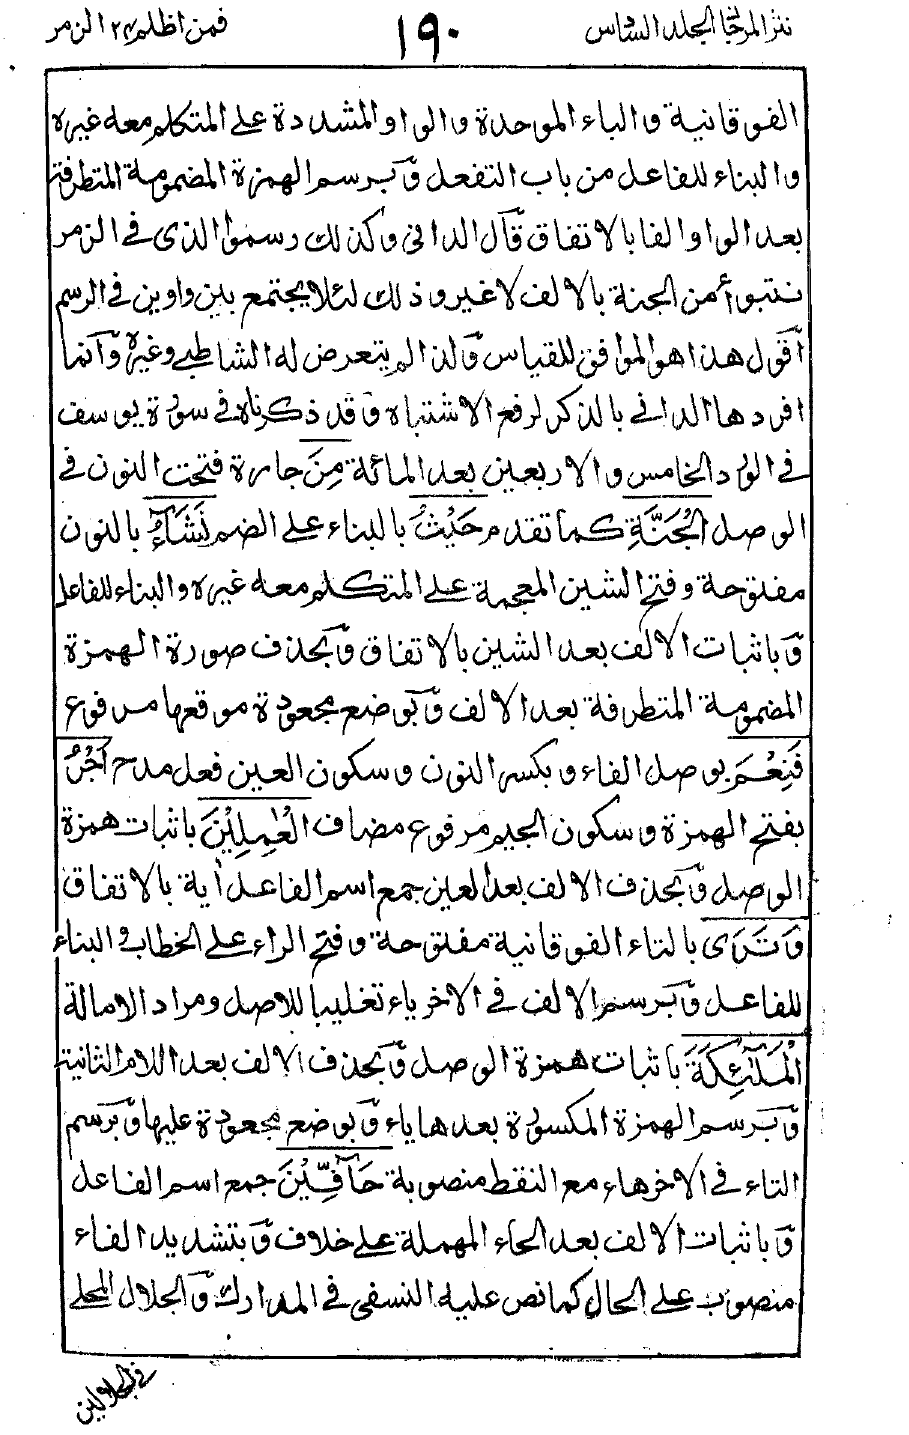 نثر المرجان المجلد السادس
١٩٠
فمن اظلم ٢٤ الزمر
الفوقانية والباء الموحدة والواو المشددة على المتكلم معه غيره
والبناء للفاعل من باب التفعل وبرسم الهمزة المضمومة المتطرفة
بعد الواو الفا بالاتفاق قال الدانى وكذلك رسموا الذى فى الزمر
نتبوأ من الجنة بالالف لا غير وذلك لئلا يجتمع بين واوين فى الرسم
اقول هذا هو الموافق للقياس ولذا لم يتعرض له الشاطبى وغيره وانما
افردها الدانى بالذكر لرفع الاشتباه وقد ذكرناه فى سورة يوسف
فى الورد الخامس والاربعين بعد المائة مِنَ جارة فتحت النون فى
الوصل الْجَنَّةِ كما تقدم حَيْثُ بالبناء على الضم نَشَآءُ بالنون
مفتوحة وفتح الشين المعجمة على المتكلم معه غيره والبناء للفاعل
وباثبات الالف بعد الشين بالاتفاق وبحذف صورة الهمزة
المضمومة المتطرفة بعد الالف وبوضع مجعودة موقعها مرفوع
فَنِعْمَ بوصل الفاء وبكسر النون وسكون العين فعل مدح اَجْرُ
بفتح الهمزة وسكون الجيم مرفوع مضاف الْعٰمِلِيْنَ باثبات همزة
الوصل وبحذف الالف بعد العين جمع اسم الفاعل اٰية بالاتفاق
وَتَرَى بالتاء الفوقانية مفتوحة وفتح الراء على الخطاب والبناء
للفاعل وبرسم الالف فى الاخر ياء تغليبا للاصل ومراد الامالة
الْمَلٰٓئِكَةَ باثبات همزة الوصل وبحذف الالف بعد اللام الثانية
وبرسم الهمزة المكسورة بعدها ياء وبوضع مجعودة عليها وبرسم
التاء فى الاخر هاء مع النقط منصوبة حَآفِّيْنَ جمع اسم الفاعل
وباثبات الالف بعد الحاء المهملة على خلاف وبتشديد الفاء
منصوب على الحال كما نص عليه النسفى فى المدارك والجلال المحلى
فى الجلالين